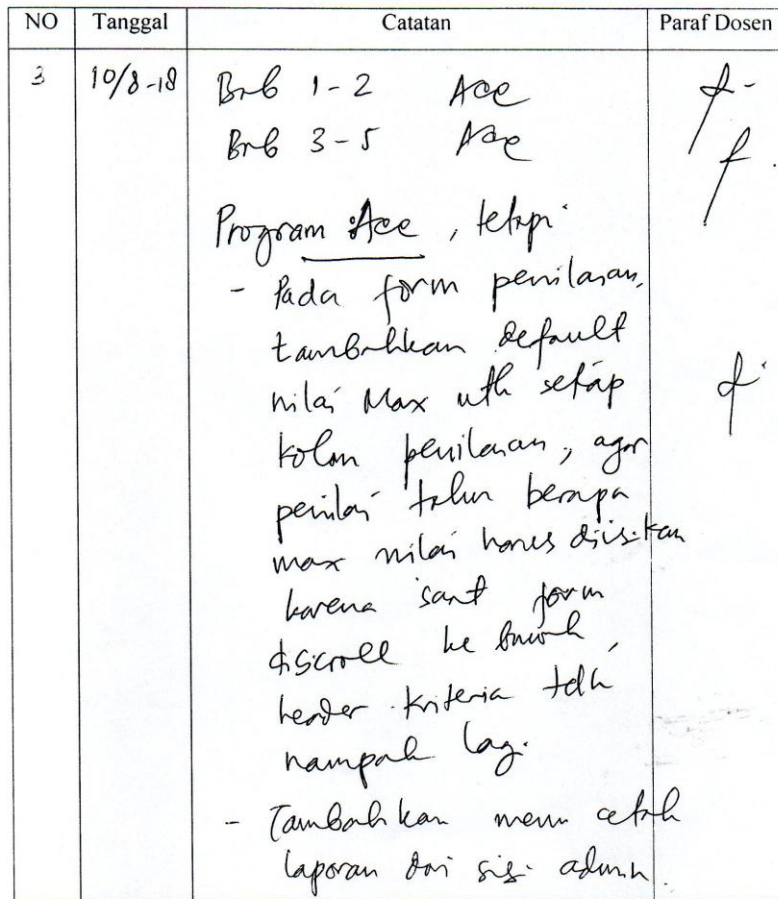 NO Tanggal Catatan Paraf Dosen
3 10/8-18 Bab 1-2 Acc
Bab 3-5 Acc
Program Acc, tetapi
- Pada form penilaian,
tambahkan default
nilai Max utk setiap
kolom penilaian, agar
penilai tahu berapa
max nilai harus diisikan
karena saat form
discroll ke bawah,
header kriteria tdk
nampak lagi.
- Tambahkan menu cetak
laporan dari sisi admin.